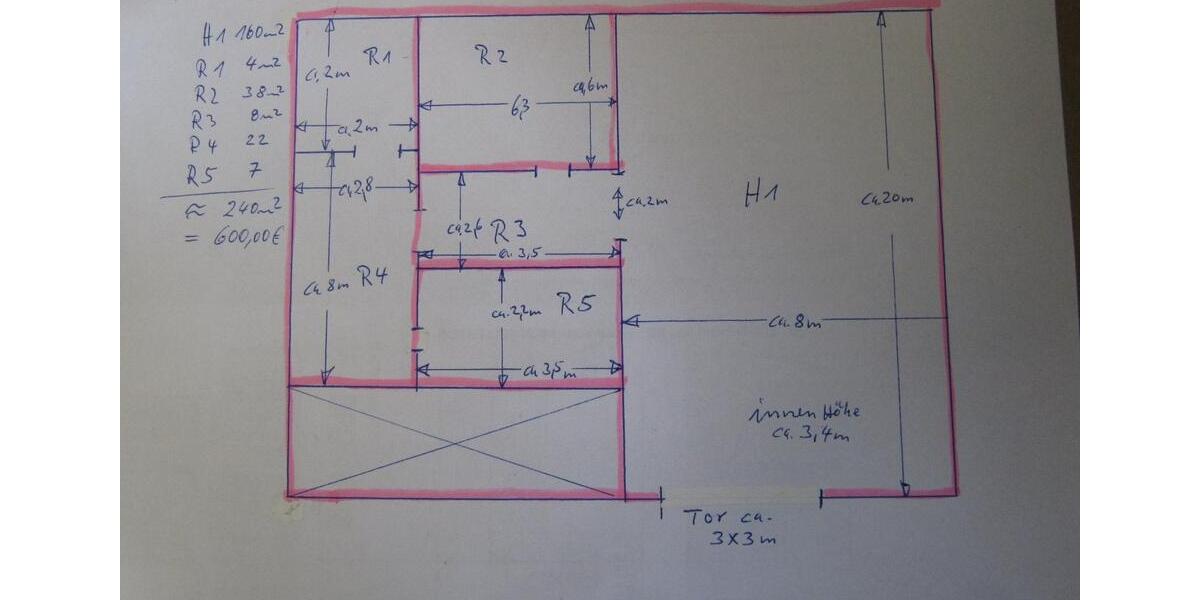 H1 160m²
R1 4m²
R2 38m²
R3 8m²
R4 22
R5 7
≈ 240m²
= 600,00€
R1
ca. 2m
ca. 2m
R2
ca. 6m
6,3
ca. 2,8
ca. 8m
R4
ca. 2,6
R3
ca. 3,5
ca. 2m
ca. 2,2m
R5
ca. 3,5m
H1
ca. 20m
ca. 8m
innen Höhe
ca. 3,4m
Tor ca.
3x3m